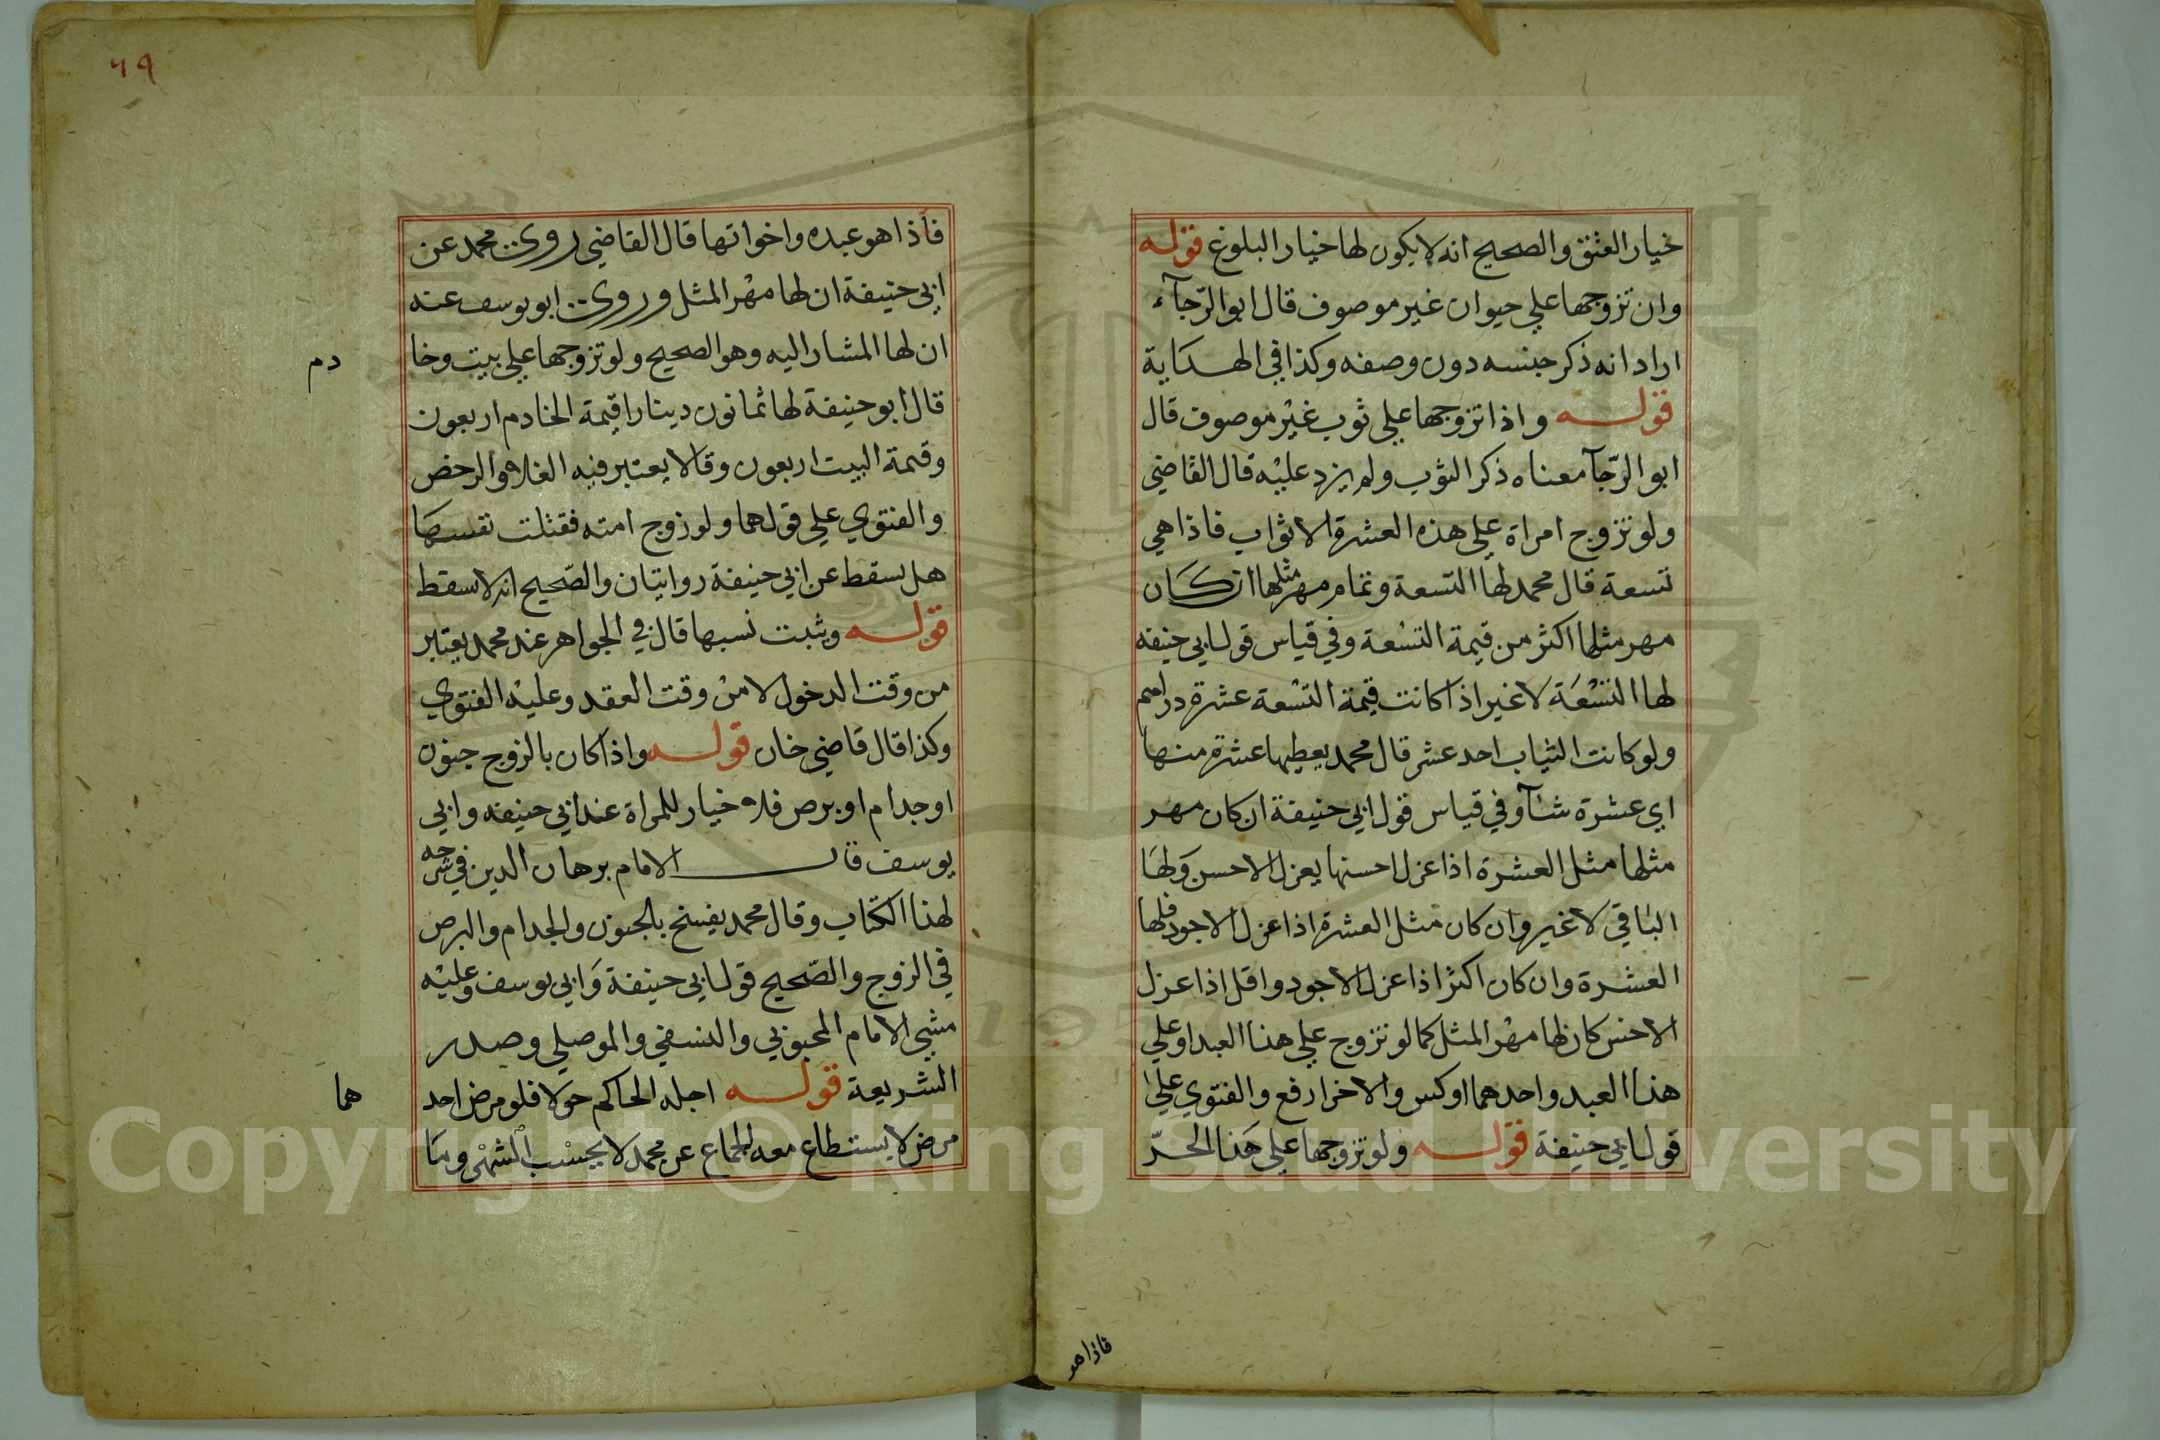 خيار العتق والصحيح انه لا يكون لها خيار البلوغ قوله
وان تزوجها علي حيوان غير موصوف قال ابو الرّجآء
اراد انه ذكر جنسه دون وصفه وكذا في الهداية
قوله واذا تزوجها علي ثوب غير موصوف قال
ابو الرّجآ معناه ذكر الثوب ولم يزد عليه قال القاضي
ولو تزوج امراة علي هذه العشرة الاثواب فاذا هي
تسعة قال محمد لها التسعة وتمام مهر مثلها ان كان
مهر مثلها اكثر من قيمة التسعة وفي قياس قول ابي حنيفه
لها التسعة لا غير اذا كانت قيمة التسعة عشرة دراهم
ولو كانت الثياب احد عشر قال محمد يعطيها عشرة منها
اي عشرة شآ وفي قياس قول ابي حنيفة ان كان مهر
مثلها مثل العشرة اذا عزل احسنها يعزل الاحسن ولها
الباقي لا غير وان كان مثل العشرة اذا عزل الاجود فلها
العشرة وان كان اكثر اذا عزل الاجود واقل اذا عزل
الاخس كان لها مهر المثل كما لو تزوج علي هذا العبد او علي
هذا العبد واحدهما اوكس والاخر ارفع والفتوي علي
قول ابي حنيفة قوله ولو تزوجها علي هذا الحرّ
فاذا هو
٦٩
فاذا هو عبده واخواتها قال القاضي روى محمد عن
ابي حنيفة ان لها مهر المثل وروى ابو يوسف عنه
ان لها المشار اليه وهو الصحيح ولو تزوجها علي بيت وخا
دم
قال ابو حنيفة لها ثمانون دينارا قيمة الخادم اربعون
وقيمة البيت اربعون وقالا يعتبر فيه الغلاء والرخص
والفتوي علي قولهما ولو زوج امته فقتلت نفسها
هل يسقط عن ابي حنيفة روايتان والصّحيح انه لا يسقط
قوله وثبت نسبها قال في الجواهر عند محمد يعتبر
من وقت الدخول لا من وقت العقد وعليه الفتوي
وكذا قال قاضي خان قوله واذا كان بالزوج جنون
او جدام او برص فلا خيار للمراة عند ابي حنيفه وابي
يوسف قال الامام برهان الدين في شرحه
لهذا الكتاب وقال محمد يفسخ بالجنون والجدام والبرص
في الزوج والصّحيح قول ابي حنيفة وابي يوسف وعليه
مشي الامام المحبوبي والنسفي والموصلي وصدر
الشريعة قوله اجله الحاكم حولا فلو مرض احد
هما
مرض لا يستطاع معه الجماع عن محمد لا يحسب الشهر وما
Copyright © King Saud University